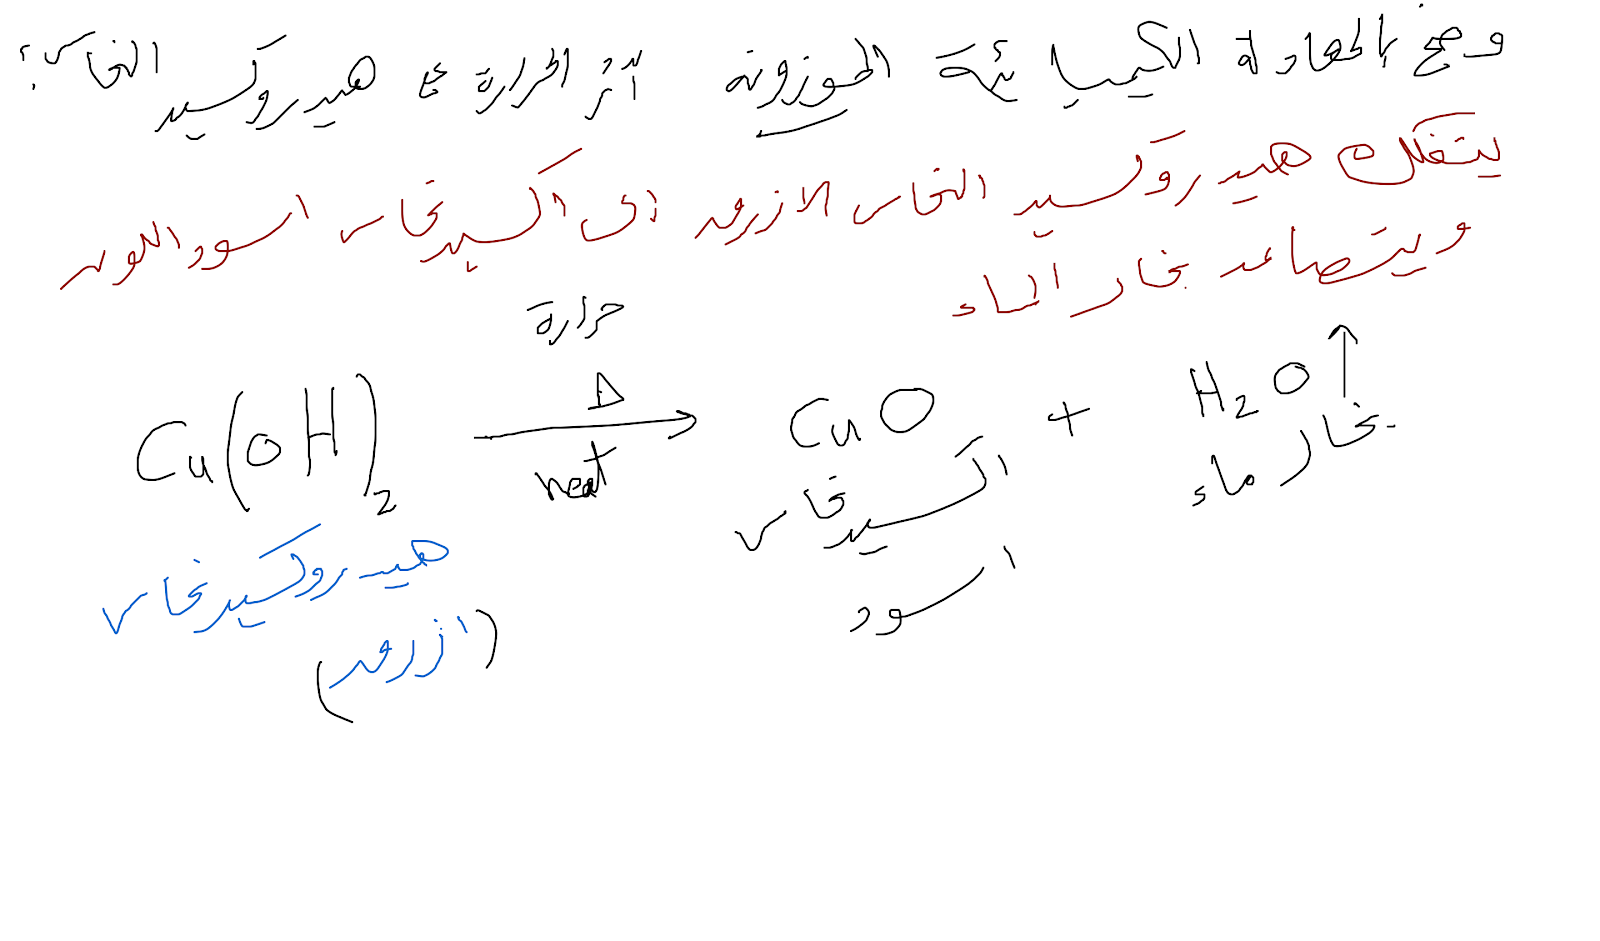 وضح بالمعادلة الكيميائية الموزونة أثر الحرارة ع هيدروكسيد النحاس؟
يتفكك هيدروكسيد النحاس الازرق الى اكسيد نحاس اسود اللون
ويتصاعد بخار الماء
حرارة
Δ
Cu(OH)₂ → CuO + H₂O↑
heat
هيدروكسيد نحاس
(ازرق)
اكسيد نحاس
اسود
بخار ماء